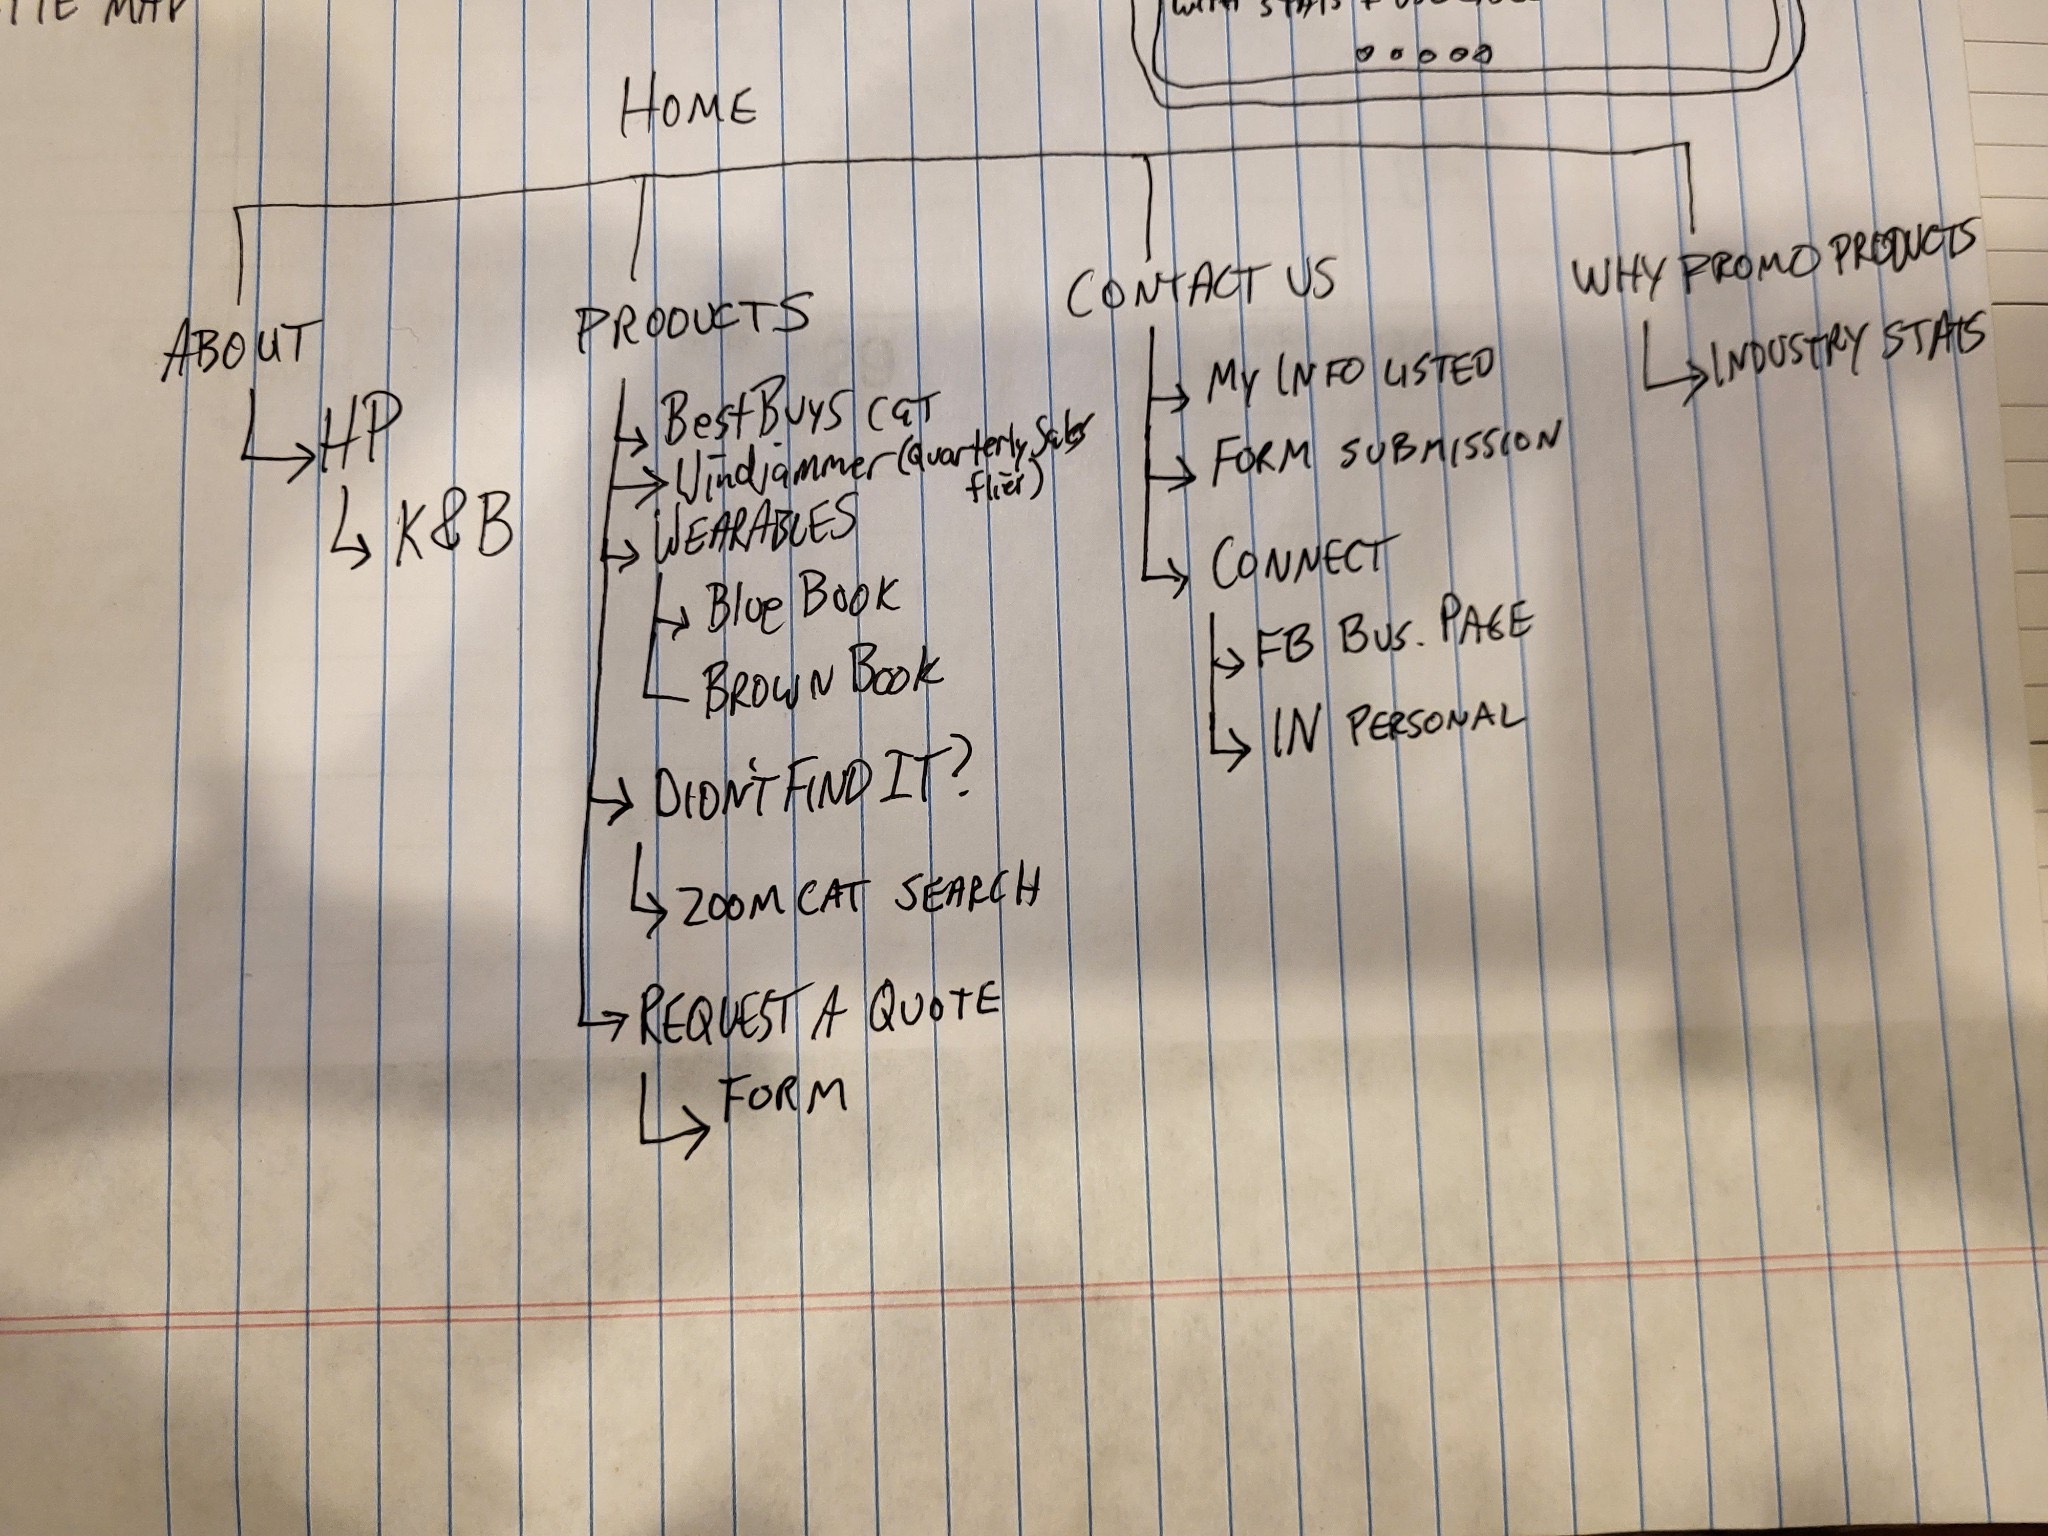 MAP
WITH STATS +
HOME
ABOUT
HP
K&B
PRODUCTS
BestBuys cat
Windjammer (Quarterly Sales
flier)
WEARABLES
Blue Book
BROWN BOOK
DIDN'T FIND IT?
ZOOMCAT SEARCH
REQUEST A QUOTE
FORM
CONTACT US
MY INFO LISTED
FORM SUBMISSION
CONNECT
FB BUS. PAGE
IN PERSONAL
WHY PROMO PRODUCTS
INDUSTRY STATS